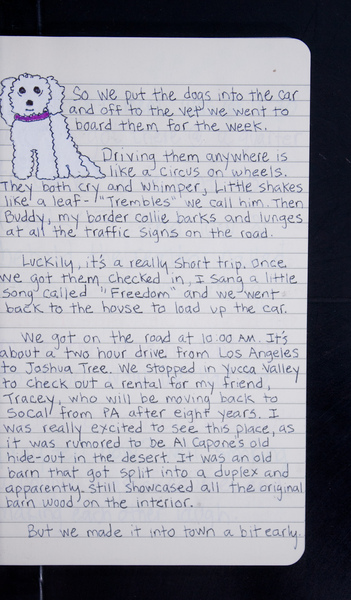 So we put the dogs into the car
and off to the vet we went to
board them for the week.
Driving them anywhere is
like a circus on wheels.
They both cry and whimper, Little shakes
like a leaf- "Trembles" we call him. Then
Buddy, my border collie barks and lunges
at all the traffic signs on the road.
Luckily, it's a really short trip. Once
we got them checked in, I sang a little
song called "Freedom" and we went
back to the house to load up the car.
We got on the road at 10:00 AM. It's
about a two hour drive from Los Angeles
to Joshua Tree. We stopped in Yucca Valley
to check out a rental for my friend,
Tracey, who will be moving back to
SoCal from PA after eight years. I
was really excited to see this place, as
it was rumored to be Al Capone's old
hide-out in the desert. It was an old
barn that got split into a duplex and
apparently still showcased all the original
barn wood on the interior.
But we made it into town a bit early.